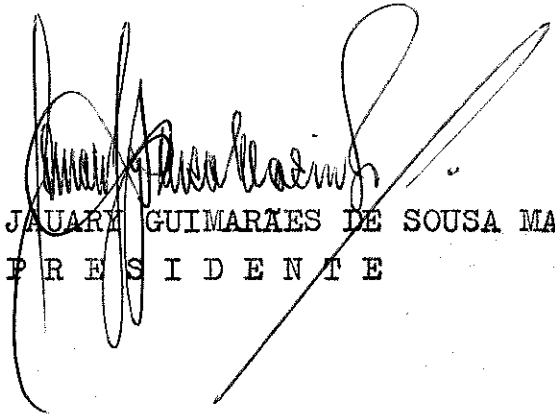 JAUARY GUIMARÃES DE SOUSA MA
PRESIDENTE